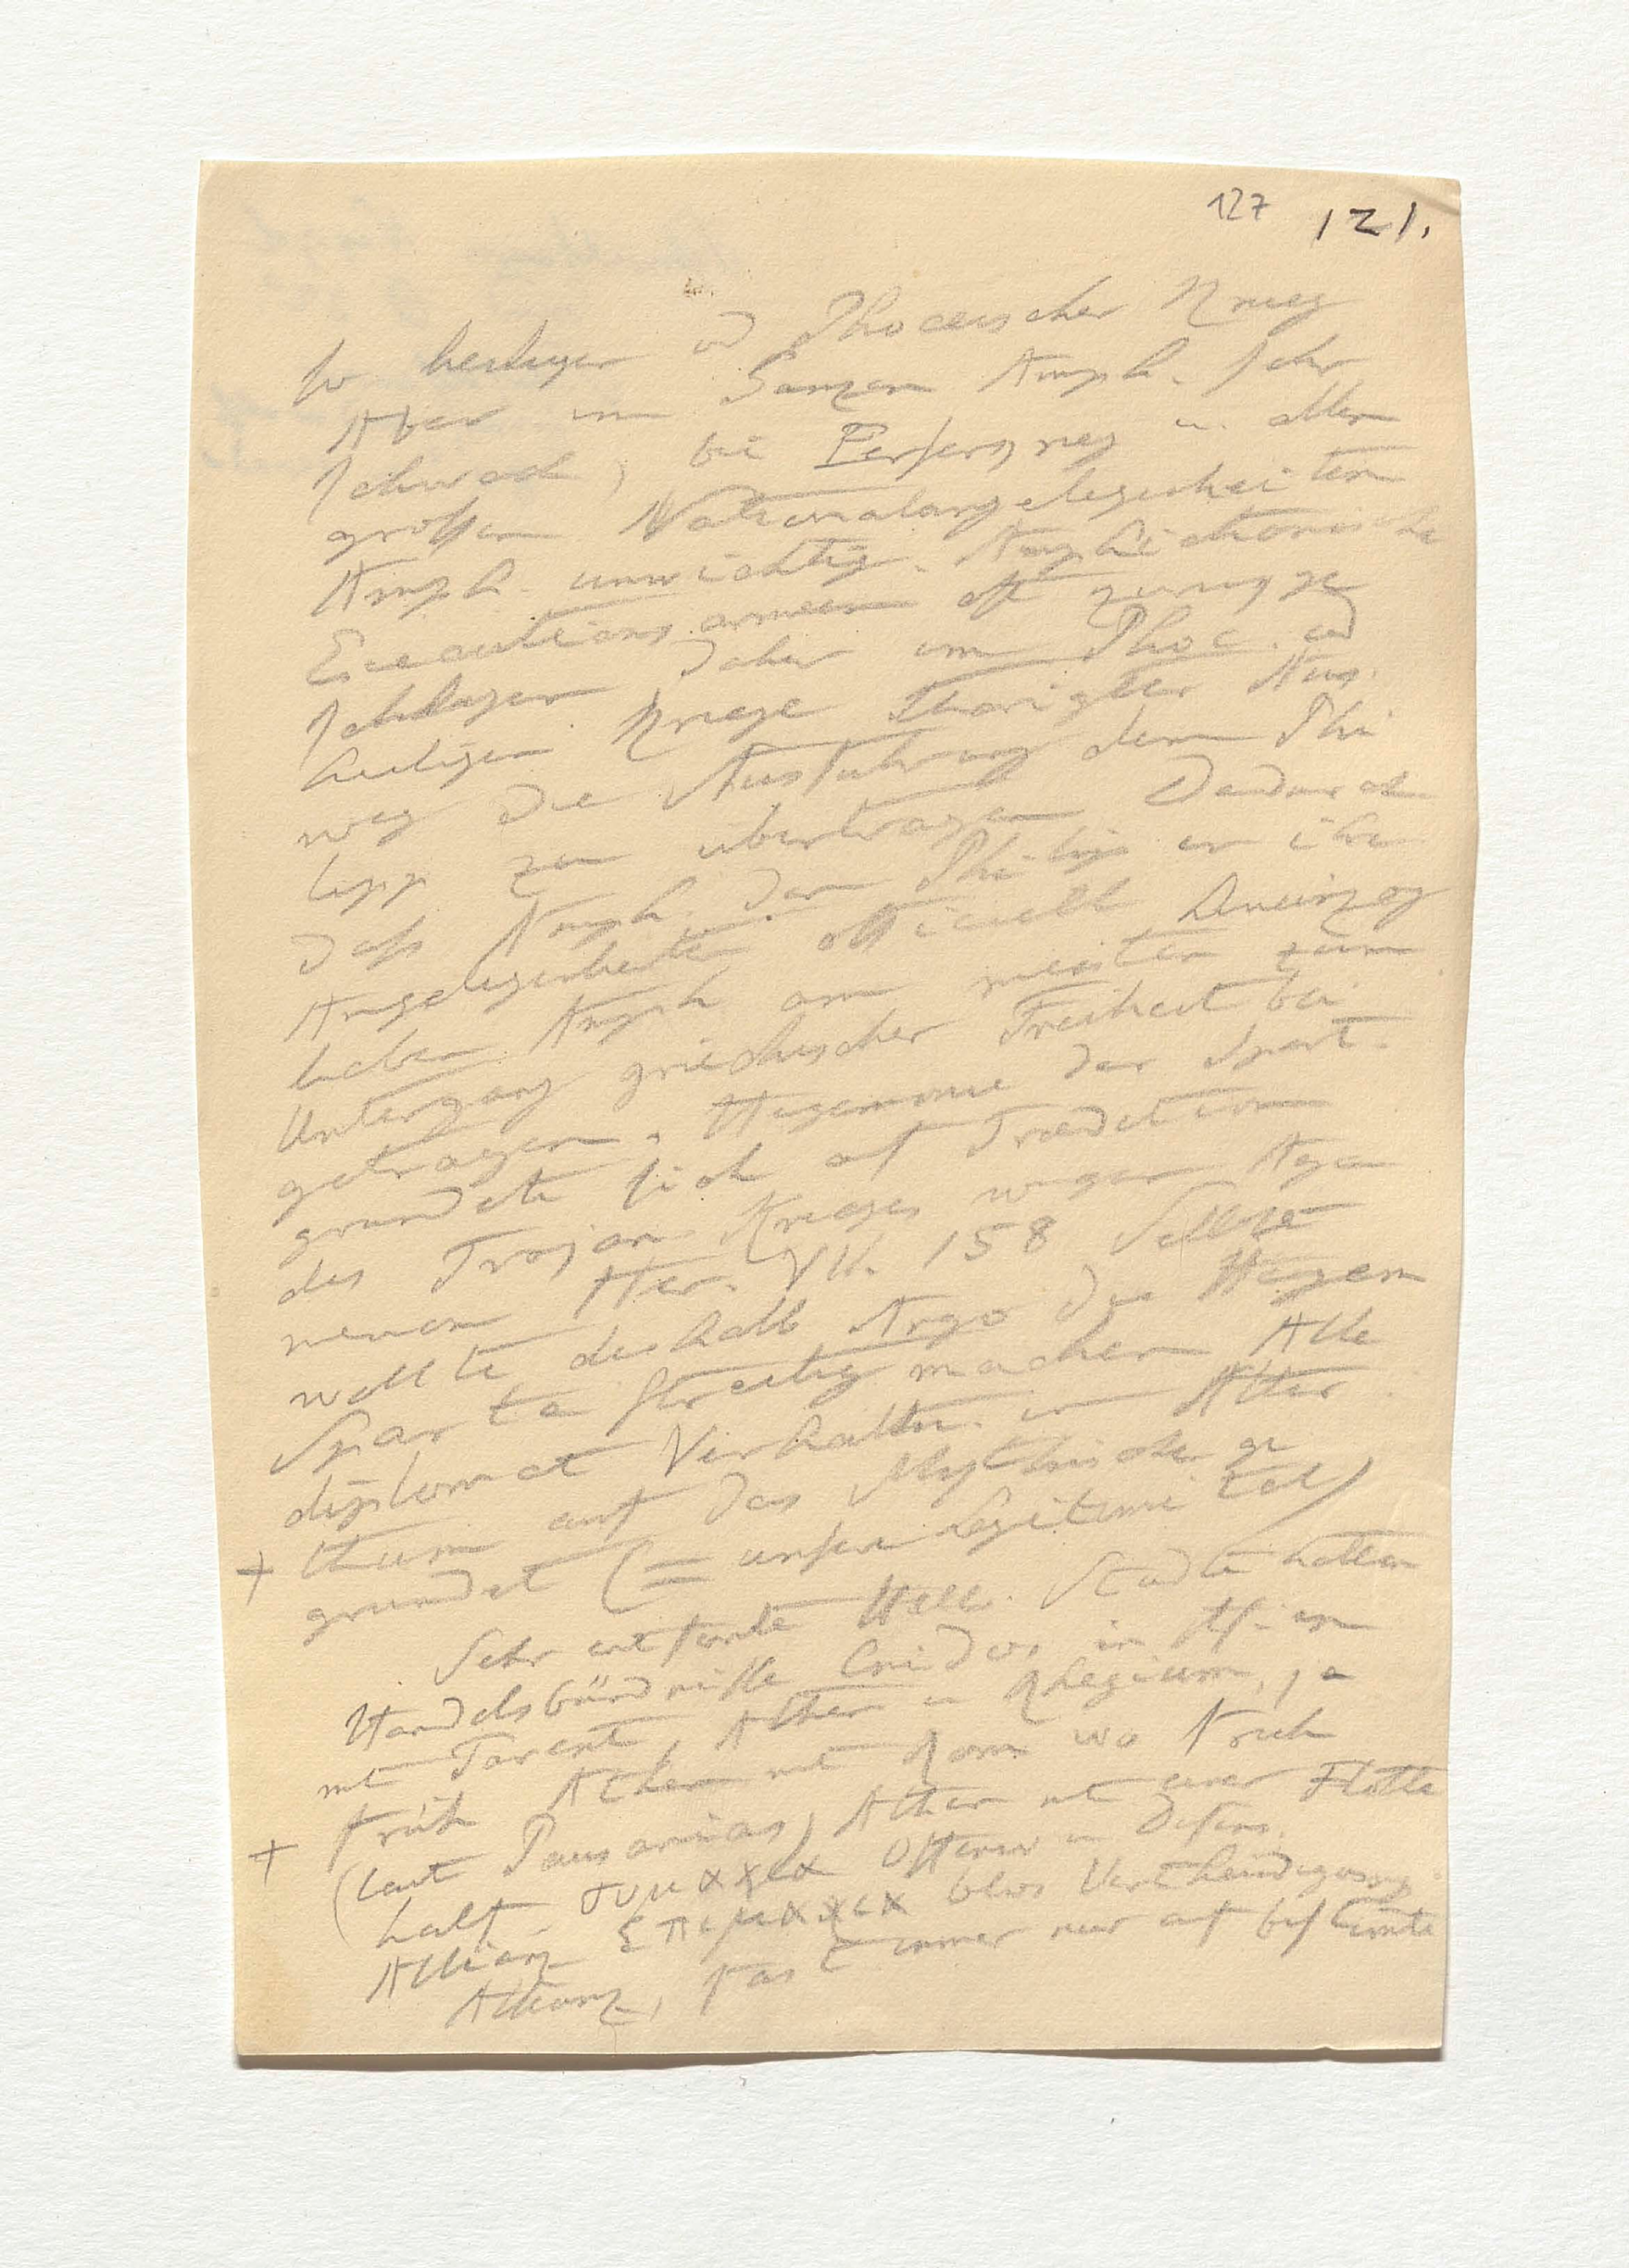 127 121.
So heiliger u Phoceischer Krieg
Aber im Ganzen Amph. sehr
schwach, bei Perserkrieg u. allen
großen Nationalangelegenheiten
Amph. unwichtig. Amphictionische
Executionsarmeen oft zurückge
schlagen daher im Phoc. und
heiligen Kriege Aus
weg die Ausführung dem Phi
lipp zu übertragen Dadurch
daß Amph. den Philipp in ihre
Angelegenheiten officiell hineinzog
haben Amph am meisten zum
Untergang griechischer Freiheit bei
getragen. Hegemonie der Spart.
gründete sich auf Tradition
des Trojan. Krieges wegen Aga
memnon Her. VII. 158 Selbst
wollte deshalb Argo die Hegem
Sparta streitig machen Alle
diplomat Verhältn. im Alter
+ thum auf das Mythische ge
gründet (= unsere Legitimität)
Sehr entfernte Hell. Städte hatten
Handelsbündnisse Cnidos in Asien
mit Tarent, Athen u Rhegium, ja
+ früh Athen mit Rom wo früh
(laut Pausanias) Athen mit einer Flotte
half. συμμαχια Offensiv u Defens.
Allianz επιμαχια blos Vertheidigungs
Allianz, fast immer nur auf bestimte